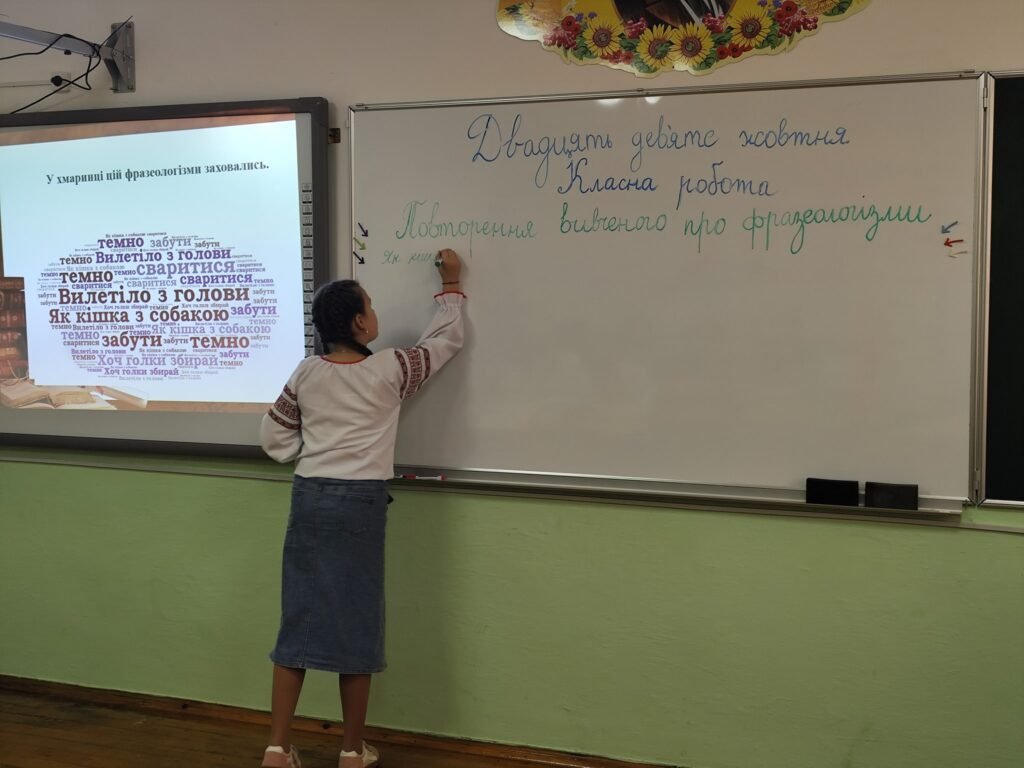 У хмаринці цій фразеологізми заховались.
Як кішка з собакою
темно забути забути
Вилетіло з голови
Як кішка з собакою сваритися
темно темно сваритися сваритися темно
Вилетіло з голови забути
Як кішка з собакою забути
Вилетіло з голови темно Як кішка з собакою
темно забути забути темно
сваритися
Вилетіло з голови забути
темно Хоч голки збирай темно
Хоч голки збирай
Вилетіло з голови
Двадцять дев'яте жовтня
Класна робота
Повторення вивченого про фразеологізми
Як